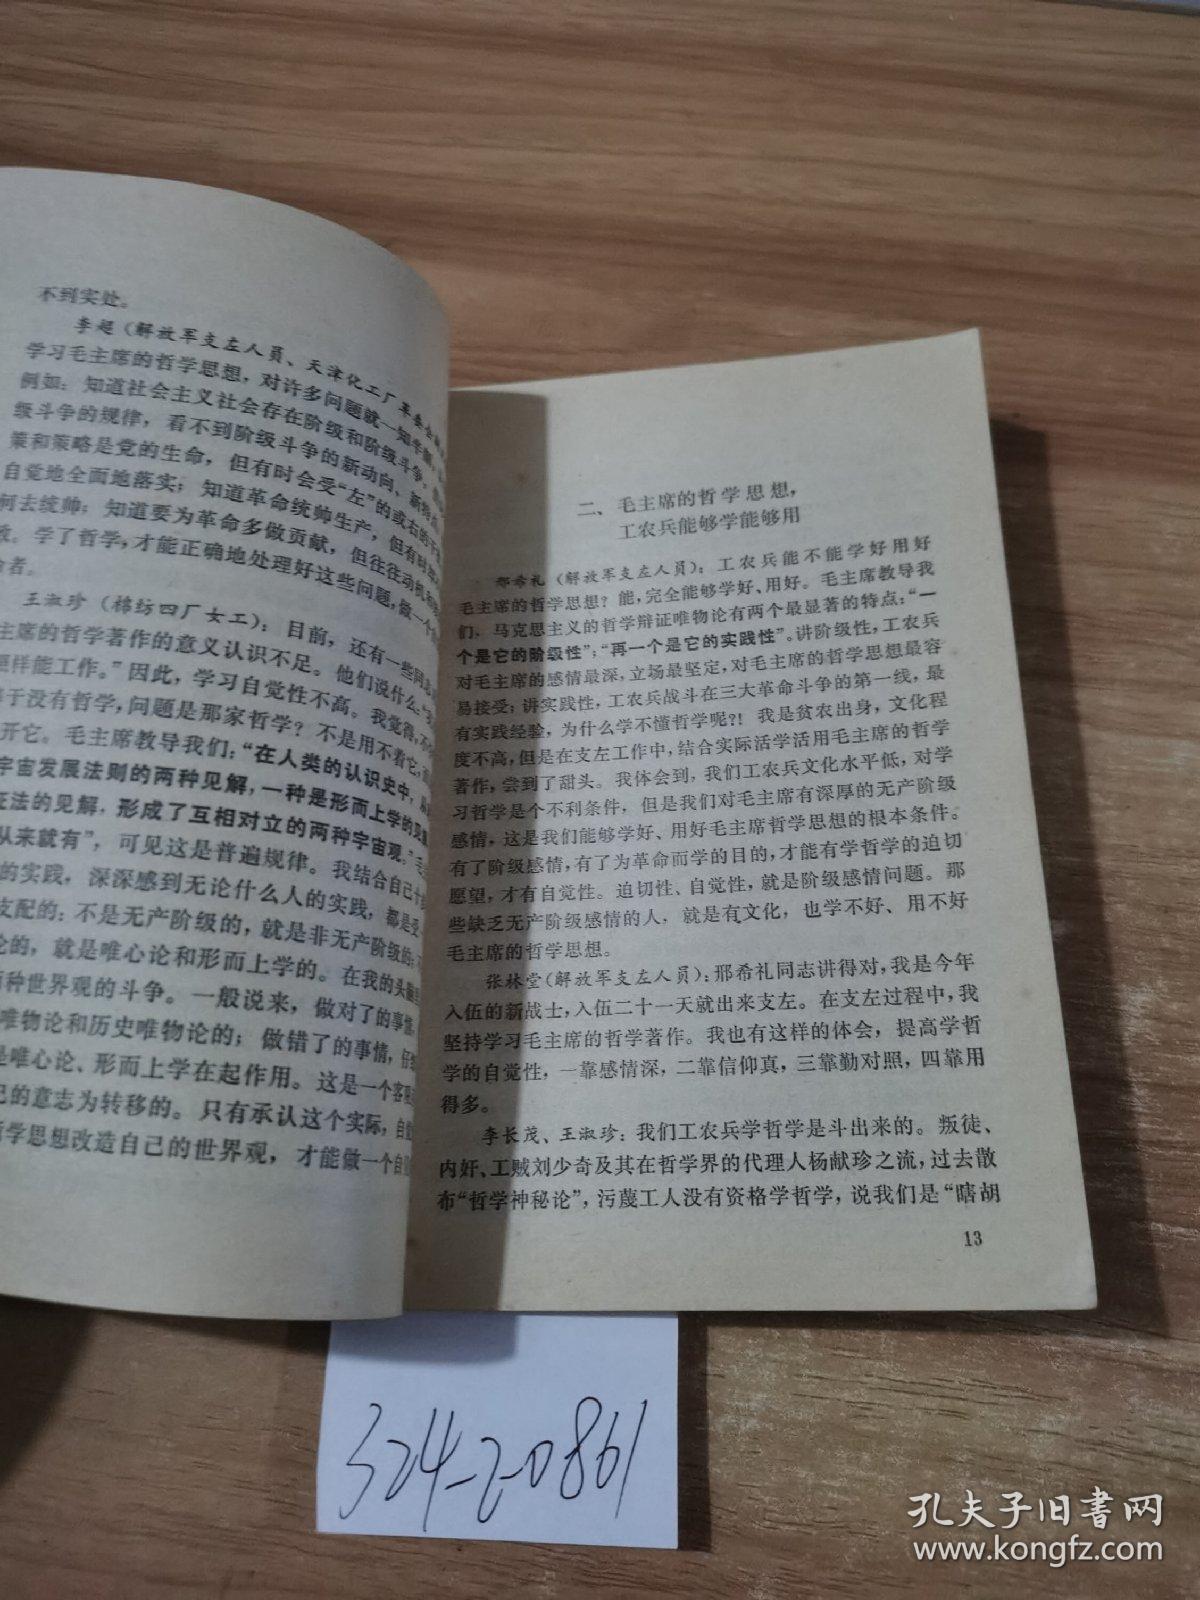 不到实处。
李超（解放军支左人員、天津化工厂革委会
学习毛主席的哲学思想，对许多问题就一知半解
例如：知道社会主义社会存在阶级和阶级斗争，
级斗争的规律，看不到阶级斗争的新动向、新特点
策和策略是党的生命，但有时会受“左”的或右的干
自觉地全面地落实；知道革命统帅生产，但有时
何去统帅；知道要为革命多做贡献，但往往动机和
致。学了哲学，才能正确地处理好这些问题，做一个
命者。
王淑珍（棉纺四厂女工）：目前，还有一些同志
主席的哲学著作的意义认识不足。他们说什么“
照样能工作。”因此，学习自觉性不高。我觉得，不
于没有哲学，问题是那家哲学？不是用不着它，
开它。毛主席教导我们：“在人类的认识史中，
宇宙发展法则的两种见解，一种是形而上学的见
证法的见解，形成了互相对立的两种宇宙观。”
从来就有”，可见这是普遍规律。我结合自己十
的实践，深深感到无论什么人的实践，都是受
支配的：不是无产阶级的，就是非无产阶级的；
论的，就是唯心论和形而上学的。在我的头脑里
两种世界观的斗争。一般说来，做对了的事情，
唯物论和历史唯物论的；做错了的事情，仔
是唯心论、形而上学在起作用。这是一个客
己的意志为转移的。只有承认这个实际，自
哲学思想改造自己的世界观，才能做一个自
二、毛主席的哲学思想，
工农兵能够学能够用
邢希礼（解放军支左人員）：工农兵能不能学好用好
毛主席的哲学思想？能，完全能够学好、用好。毛主席教导我
们，马克思主义的哲学辩证唯物论有两个最显著的特点：“一
个是它的阶级性”；“再一个是它的实践性”。讲阶级性，工农兵
对毛主席的感情最深，立场最坚定，对毛主席的哲学思想最容
易接受；讲实践性，工农兵战斗在三大革命斗争的第一线，最
有实践经验，为什么学不懂哲学呢？！我是贫农出身，文化程
度不高，但是在支左工作中，结合实际活学活用毛主席的哲学
著作，尝到了甜头。我体会到，我们工农兵文化水平低，对学
习哲学是个不利条件，但是我们对毛主席有深厚的无产阶级
感情，这是我们能够学好、用好毛主席哲学思想的根本条件。
有了阶级感情，有了为革命而学的目的，才能有学哲学的迫切
愿望，才有自觉性。迫切性、自觉性，就是阶级感情问题。那
些缺乏无产阶级感情的人，就是有文化，也学不好、用不好
毛主席的哲学思想。
张林堂（解放军支左人員）：邢希礼同志讲得对，我是今年
入伍的新战士，入伍二十一天就出来支左。在支左过程中，我
坚持学习毛主席的哲学著作。我也有这样的体会，提高学哲
学的自觉性，一靠感情深，二靠信仰真，三靠勤对照，四靠用
得多。
李长茂、王淑珍：我们工农兵学哲学是斗出来的。叛徒、
内奸、工贼刘少奇及其在哲学界的代理人杨献珍之流，过去散
布“哲学神秘论”，污蔑工人没有资格学哲学，说我们是“瞎胡
13
324-20861
孔夫子旧书网
www.kongfz.com